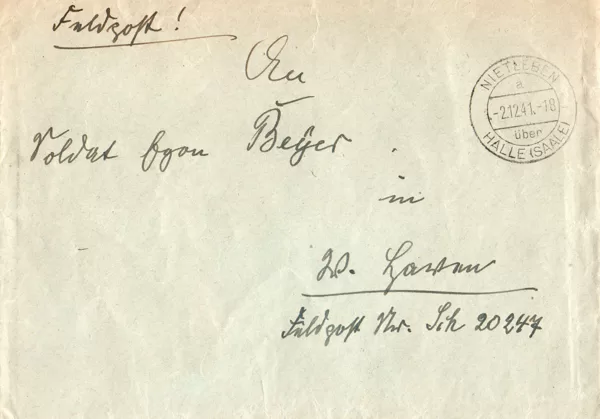 Feldpost!
An
Soldat Egon Beyer.
in
W. Haven
Feldpost Nr. Sch 20247
NIETLEBEN
a
-2.12.41.-18
über
HALLE (SAALE)